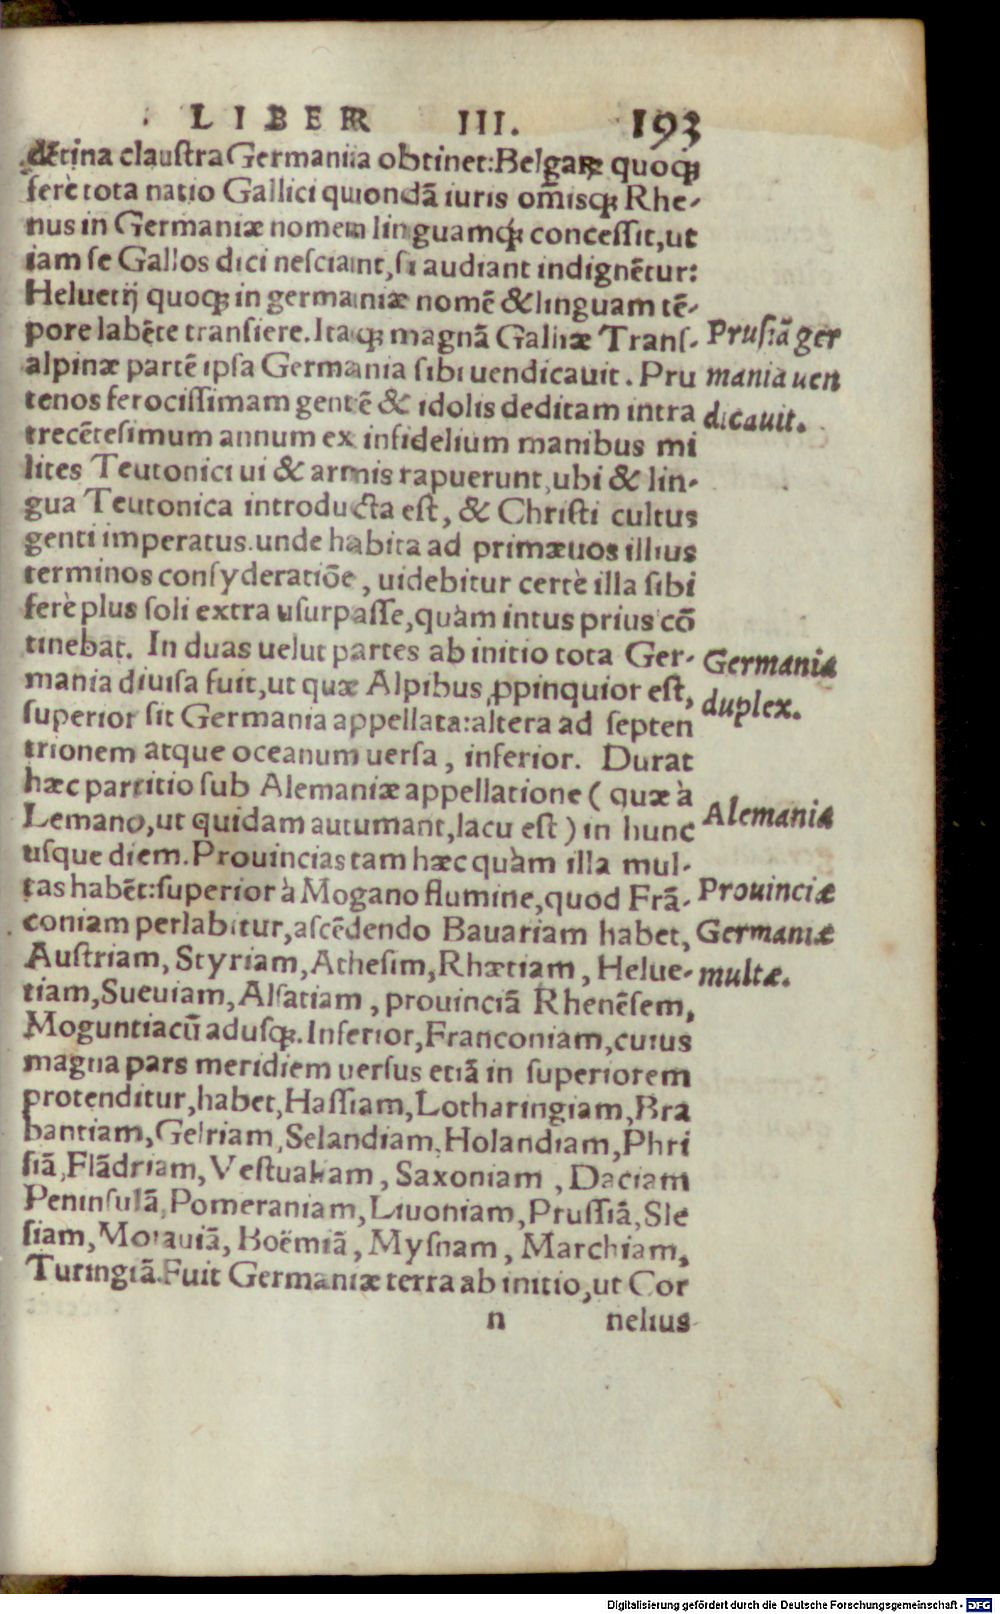 LIBER III. 193
dẽtina claustra Germania obtinet: Belgarꝫ quoqꝫ
ferè tota natio Gallici quondã iuris om̃isqꝫ Rhe-
nus in Germaniæ nomem linguamqꝫ concessit, ut
iam se Gallos dici nesciant, si audiant indignẽtur:
Heluetij quoqꝫ in germaniæ nomẽ & linguam tẽ-
pore labẽte transiere. Itaqꝫ magnã Galliæ Trans-
alpinæ partẽ ipsa Germania sibi uendicauit. Pru
tenos ferocissimam gentẽ & idolis deditam intra
trecẽtesimum annum ex infidelium manibus mi
lites Teutonici ui & armis rapuerunt, ubi & lin-
gua Teutonica introducta est, & Christi cultus
genti imperatus. unde habita ad primæuos illius
terminos consyderatiõe, uidebitur certè illa sibi
ferè plus soli extra usurpasse, quàm intus prius cõ
tinebat. In duas uelut partes ab initio tota Ger-
mania diuisa fuit, ut quæ Alpibus ꝓpinquior est,
superior sit Germania appellata: altera ad septen
trionem atque oceanum uersa, inferior. Durat
hæc partitio sub Alemaniæ appellatione (quæ à
Lemano, ut quidam autumant, lacu est) in hunc
usque diem. Prouincias tam hæc quàm illa mul-
tas habẽt: superior à Mogano flumine, quod Frã-
coniam perlabitur, ascẽdendo Bauariam habet,
Austriam, Styriam, Athesim, Rhætiam, Helue-
tiam, Sueuiam, Alsatiam, prouinciã Rhenẽsem,
Moguntiacũ adusqꝫ. Inferior, Franconiam, cuius
magna pars meridiem uersus etiã in superiorem
protenditur, habet, Hassiam, Lotharingiam, Bra
bantiam, Gelriam, Selandiam, Holandiam, Phri
siã, Flãdriam, Vestualiam, Saxoniam, Daciam
Peninsulã, Pomeraniam, Liuoniam, Prussiã, Sle
siam, Morauiã, Boëmiã, Mysnam, Marchiam,
Turingiã. Fuit Germaniæ terra ab initio, ut Cor
n nelius
Prusiã ger
mania uen
dicauit.
Germania
duplex.
Alemania
Prouinciæ
Germaniæ
multæ.
Digitalisierung gefördert durch die Deutsche Forschungsgemeinschaft - DFG